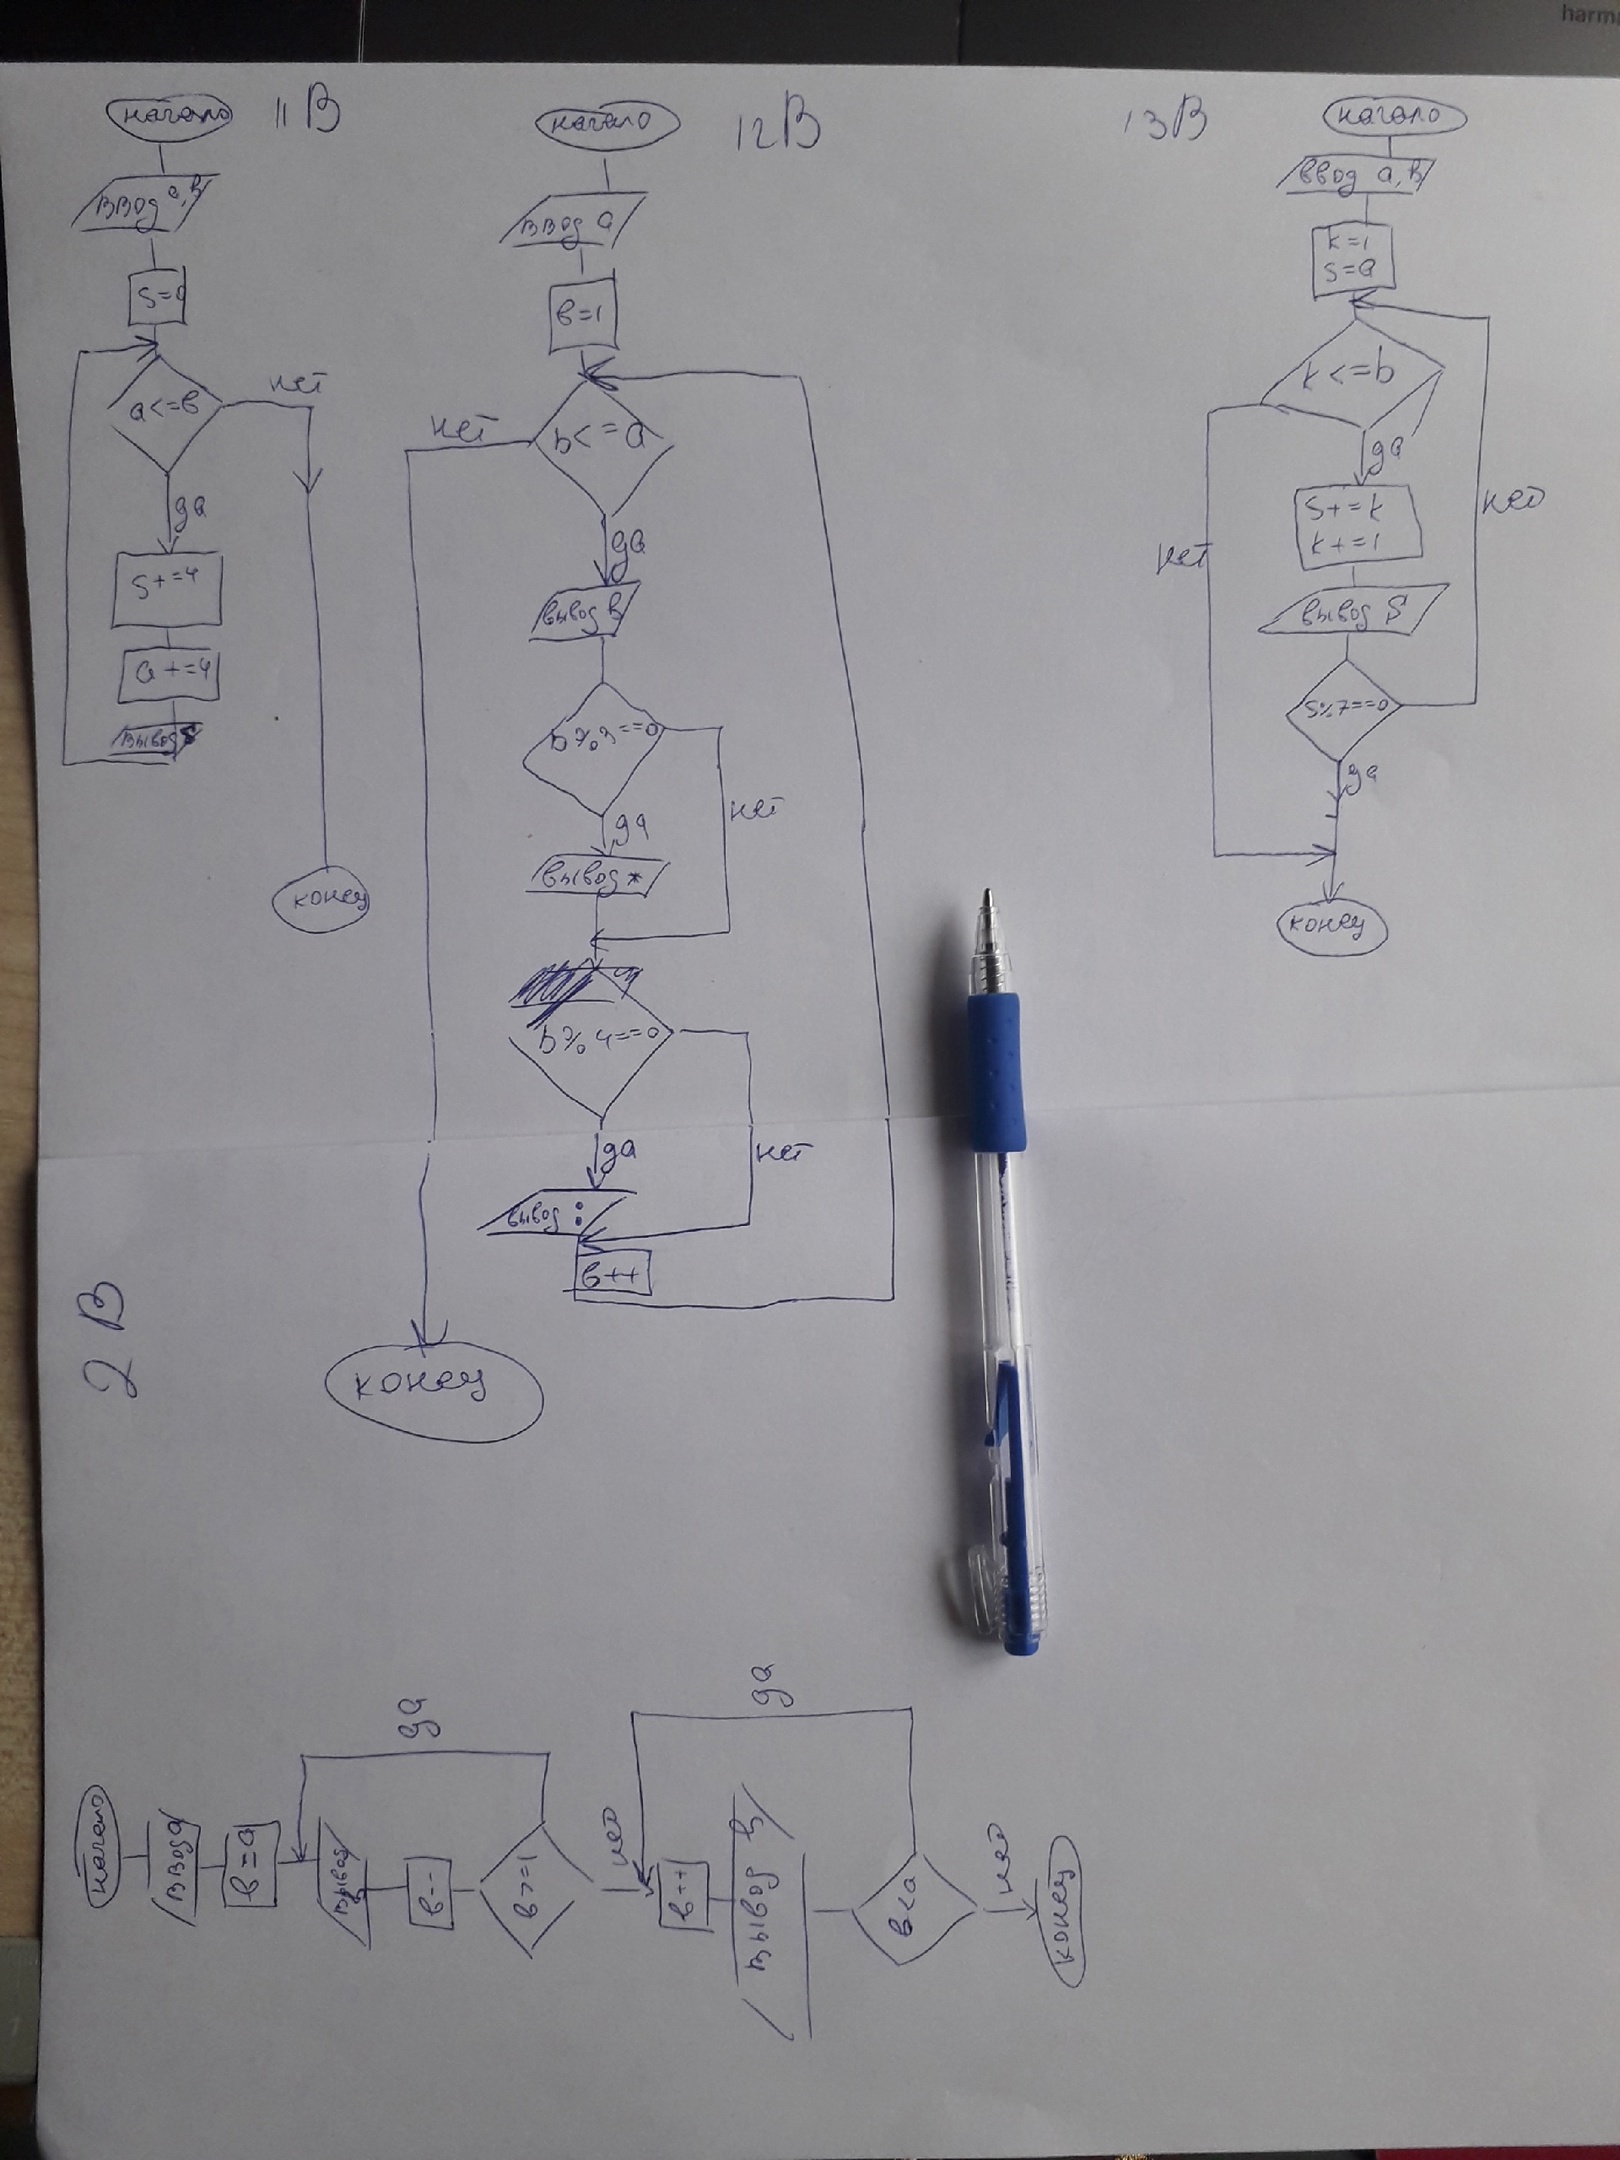 harm
начало
11В
ввод а, в
S=0
а<=в
нет
да
S+=4
а+=4
вывод S
конец
начало
12В
ввод а
в=1
b<=а
нет
да
вывод в
b%3==0
нет
да
вывод *
b%4==0
нет
да
вывод :
в++
конец
13В
начало
ввод а, в
k=1
S=а
k<=b
да
нет
нет
S+=k
k+=1
вывод S
S%7==0
да
конец
2В
начало
ввод а
в=а
да
вывод
в--
в>=1
нет
да
в++
вывод в
в<а
нет
конец